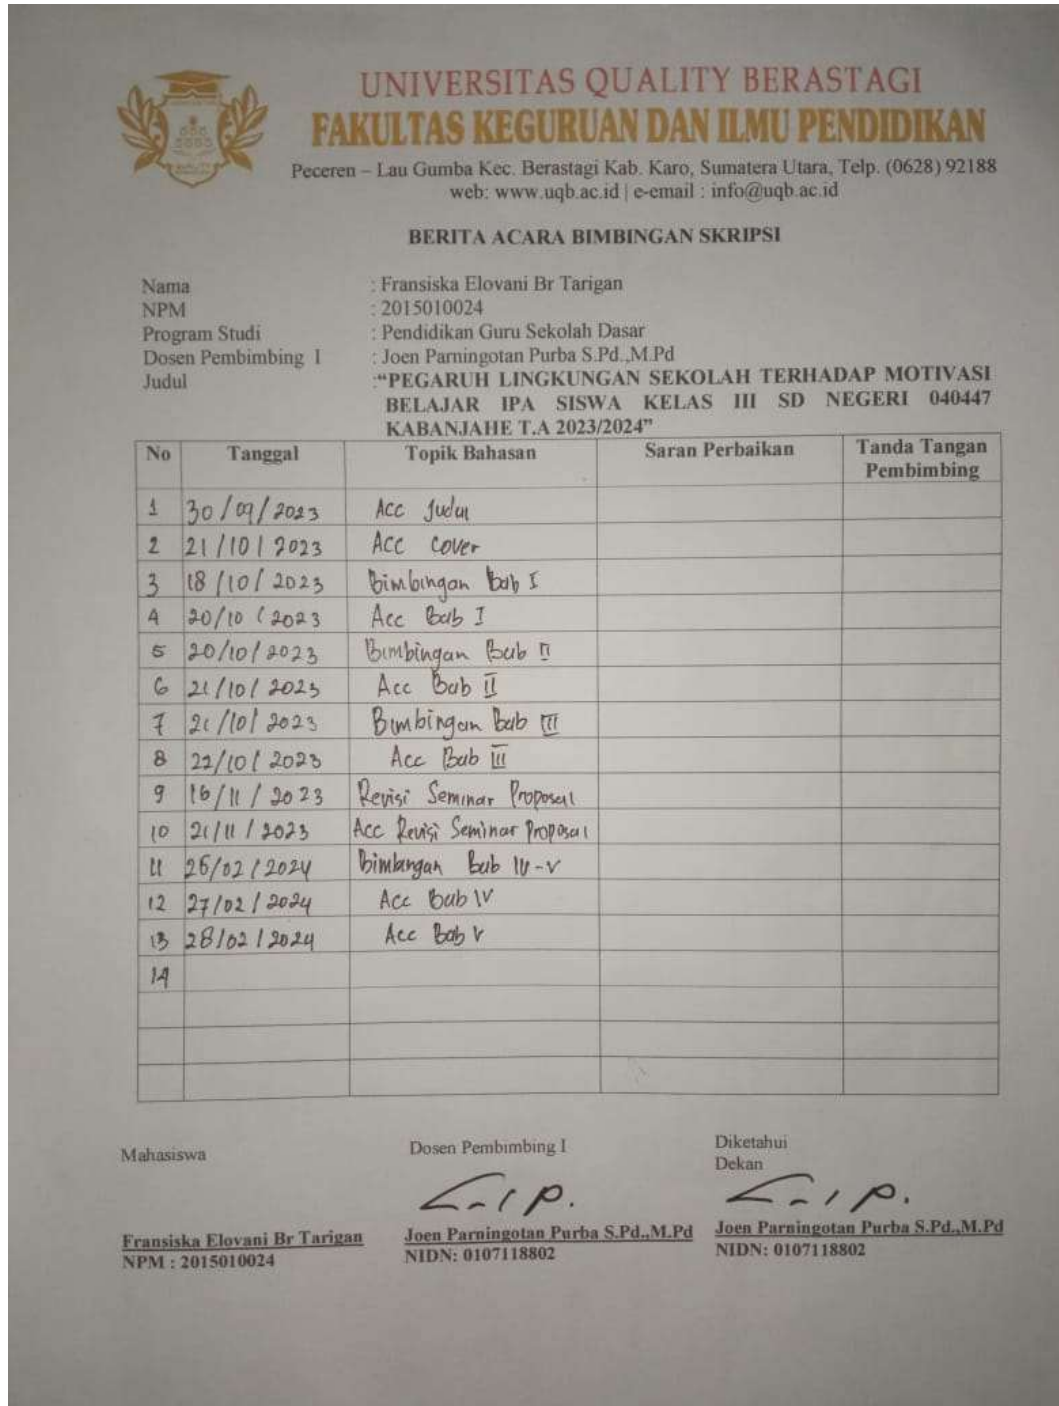 UNIVERSITAS QUALITY BERASTAGI
FAKULTAS KEGURUAN DAN ILMU PENDIDIKAN
Peceren – Lau Gumba Kec. Berastagi Kab. Karo, Sumatera Utara, Telp. (0628) 92188
web: www.uqb.ac.id | e-email : info@uqb.ac.id
BERITA ACARA BIMBINGAN SKRIPSI
Nama : Fransiska Elovani Br Tarigan
NPM : 2015010024
Program Studi : Pendidikan Guru Sekolah Dasar
Dosen Pembimbing I : Joen Parningotan Purba S.Pd.,M.Pd
Judul :“PEGARUH LINGKUNGAN SEKOLAH TERHADAP MOTIVASI
BELAJAR IPA SISWA KELAS III SD NEGERI 040447
KABANJAHE T.A 2023/2024”
No Tanggal Topik Bahasan Saran Perbaikan Tanda Tangan
Pembimbing
1 30/09/2023 Acc Judul
2 21/10/2023 Acc Cover
3 18/10/2023 Bimbingan Bab I
4 20/10/2023 Acc Bab I
5 20/10/2023 Bimbingan Bab II
6 21/10/2023 Acc Bab II
7 21/10/2023 Bimbingan Bab III
8 22/10/2023 Acc Bab III
9 16/11/2023 Revisi Seminar Proposal
10 21/11/2023 Acc Revisi Seminar Proposal
11 26/02/2024 Bimbingan Bab IV-V
12 27/02/2024 Acc Bab IV
13 28/02/2024 Acc Bab V
14
Mahasiswa Dosen Pembimbing I Diketahui
Dekan
Fransiska Elovani Br Tarigan Joen Parningotan Purba S.Pd.,M.Pd Joen Parningotan Purba S.Pd.,M.Pd
NPM : 2015010024 NIDN: 0107118802 NIDN: 0107118802